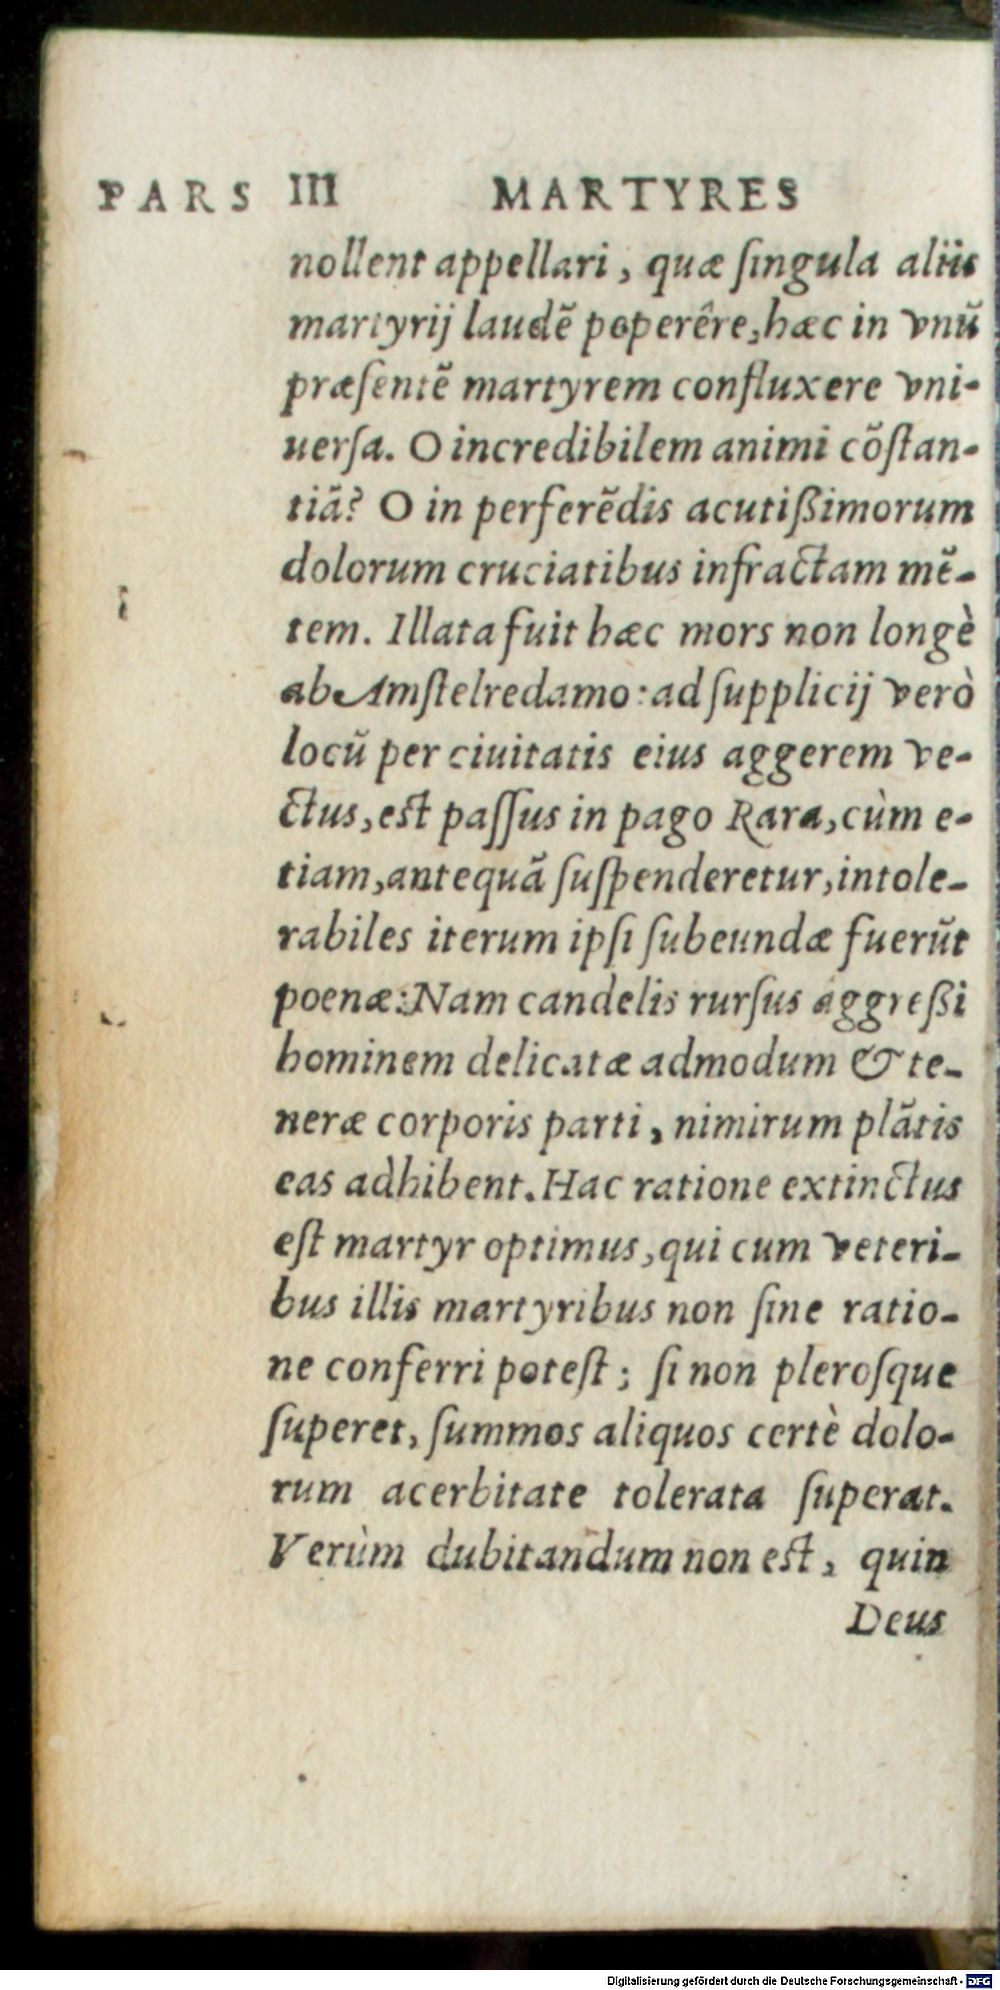 PARS III MARTYRES
nollent appellari, quæ ſingula aliis
martyrij laudē peperêre, hæc in vnū
præſentē martyrem confluxere vni-
uerſa. O incredibilem animi cōſtan-
tiā? O in perferēdis acutißimorum
dolorum cruciatibus infractam mē-
tem. Illata fuit hæc mors non longè
ab Amſtelredamo: ad ſupplicij verò
locū per ciuitatis eius aggerem ve-
ctus, est paſſus in pago Rara, cùm e-
tiam, antequā ſuſpenderetur, intole-
rabiles iterum ipſi ſubeundæ fuerūt
poenæ: Nam candelis rurſus aggreßi
hominem delicatæ admodum & te-
neræ corporis parti, nimirum plātis
eas adhibent. Hac ratione extinctus
eſt martyr optimus, qui cum veteri-
bus illis martyribus non ſine ratio-
ne conferri poteſt; ſi non pleroſque
ſuperet, ſummos aliquos certè dolo-
rum acerbitate tolerata ſuperat.
Verùm dubitandum non est, quin
Deus
Digitalisierung gefördert durch die Deutsche Forschungsgemeinschaft - DFG